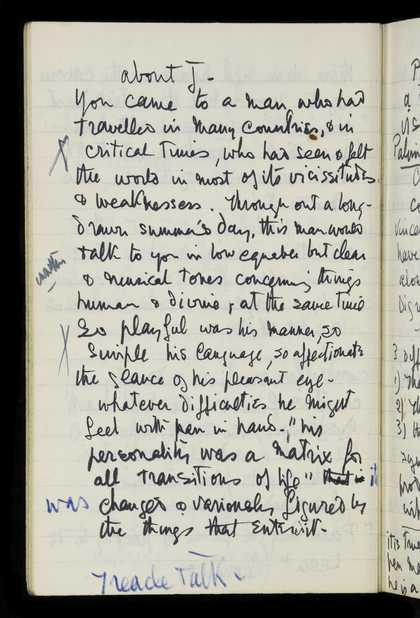 about J-
You came to a man, who had
travelled in many countries, & in
X critical times, who had seen & felt
the world in most of its vicissitudes
& weaknesses. Through out a long-
drawn summer's day, this man would
talk to you in low equable but clear
& musical tones concerning things
human & divine, at the same time
X so playful was his manner, so
simple his language, so affectionate
the glance of his pleasant eye-
whatever difficulties he might
feel with pen in hand - "his
personality was a matrix for
all transitions of life" that is it
was changed & variously figured by
the things that enter it-
talk.
P
a
Palm
C
Vince
have
abou
Dign
3 diff
1) Th
2) Th
3)
prod
it is true
pen
he is a